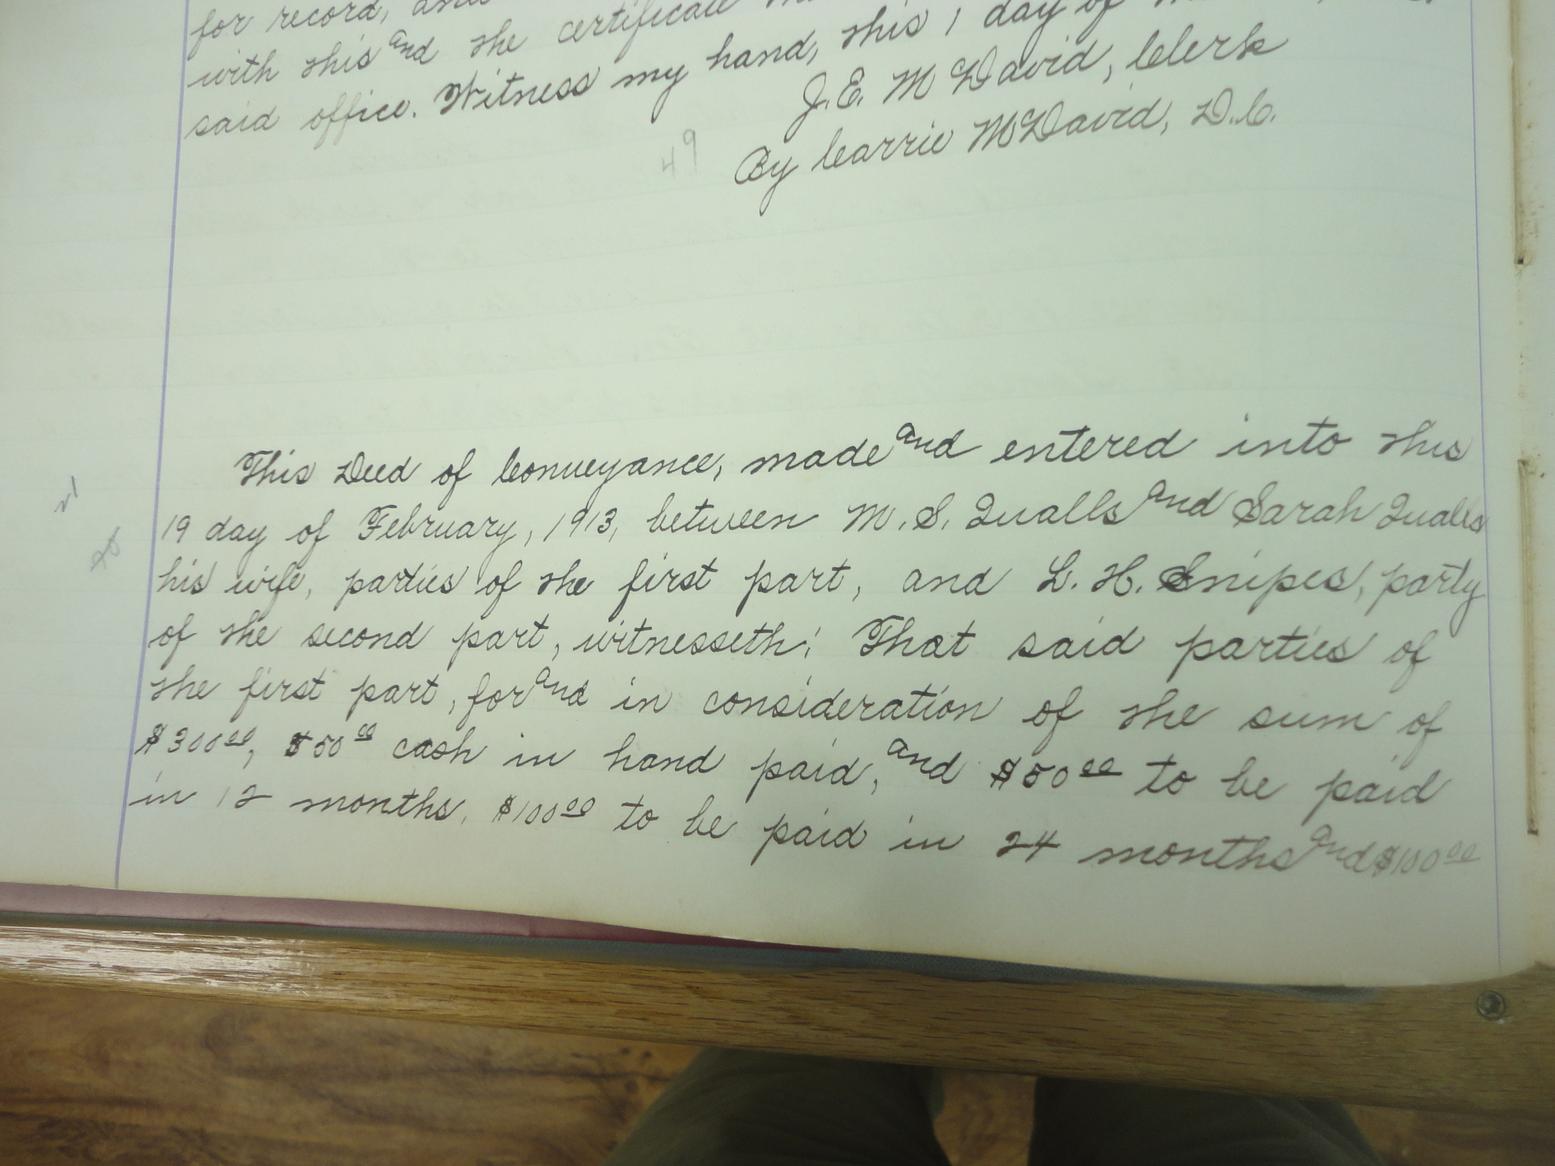 for record, and
with this and the certificate
said office. Witness my hand, this 1 day of
J. E. McDavid, Clerk
By Carrie McDavid, D.C.
49
This Deed of Conveyance, made and entered into this
19 day of February, 1913, between M. S. Qualls and Sarah Qualls
his wife, parties of the first part, and L. H. Snipes, party
of the second part, witnesseth: That said parties of
the first part, for and in consideration of the sum of
$300.00, $50.00 cash in hand paid, and $50.00 to be paid
in 12 months, $100.00 to be paid in 24 months and $100.00